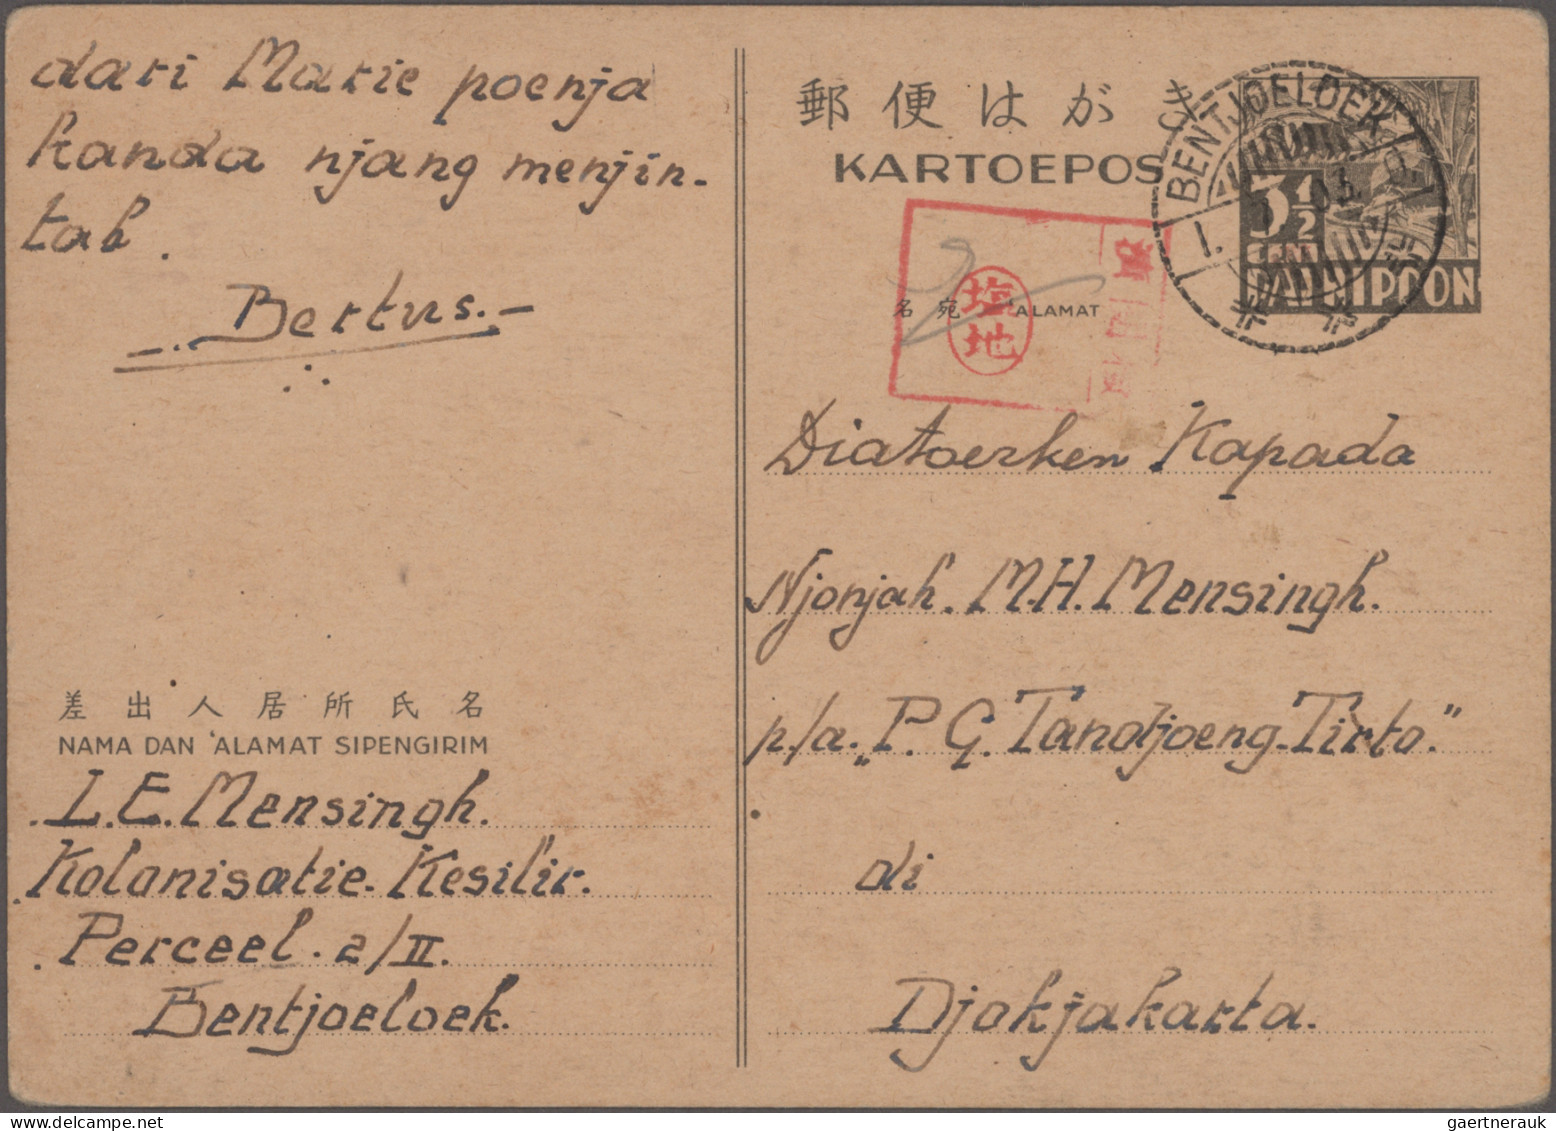 dari Marie poenja
kanda njang menjin-
tah.
Bertus.-
差出人居所氏名
NAMA DAN 'ALAMAT SIPENGIRIM
L.E. Mensingh.
Kolonisatie. Kesilir.
Perceel. 2/II.
Bentjoeloek.
郵便はがき
KARTOEPOS
BENTJOELOEK
3½
DAI NIPPON
名宛 'ALAMAT
塩地
Diatoerken Kapada
Njonjah. M.H. Mensingh.
p/a. „P. G. Tandjoeng-Tirto."
di
Djokjakarta.
gaertnerauk